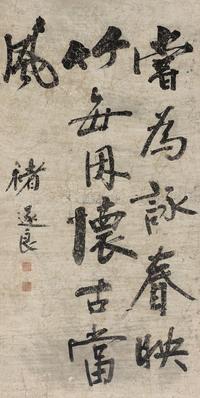 嘗為詠春映
竹每用懷古當
風
褚遂良